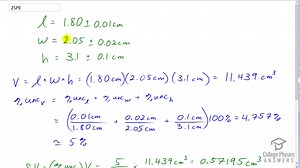 25PE
l = 1.80 ± 0.01 cm
w = 2.05 ± 0.02 cm
h = 3.1 ± 0.1 cm
V = l · w · h = (1.80 cm)(2.05 cm)(3.1 cm) = 11.439 cm³
% unc_V = % unc_l + % unc_w + % unc_h
= (0.01 cm / 1.80 cm + 0.02 cm / 2.05 cm + 0.1 cm / 3.1 cm) 100% = 4.757 %
≃ 5 %
5 11.439 cm³ = 0.57195 cm³
College Physics